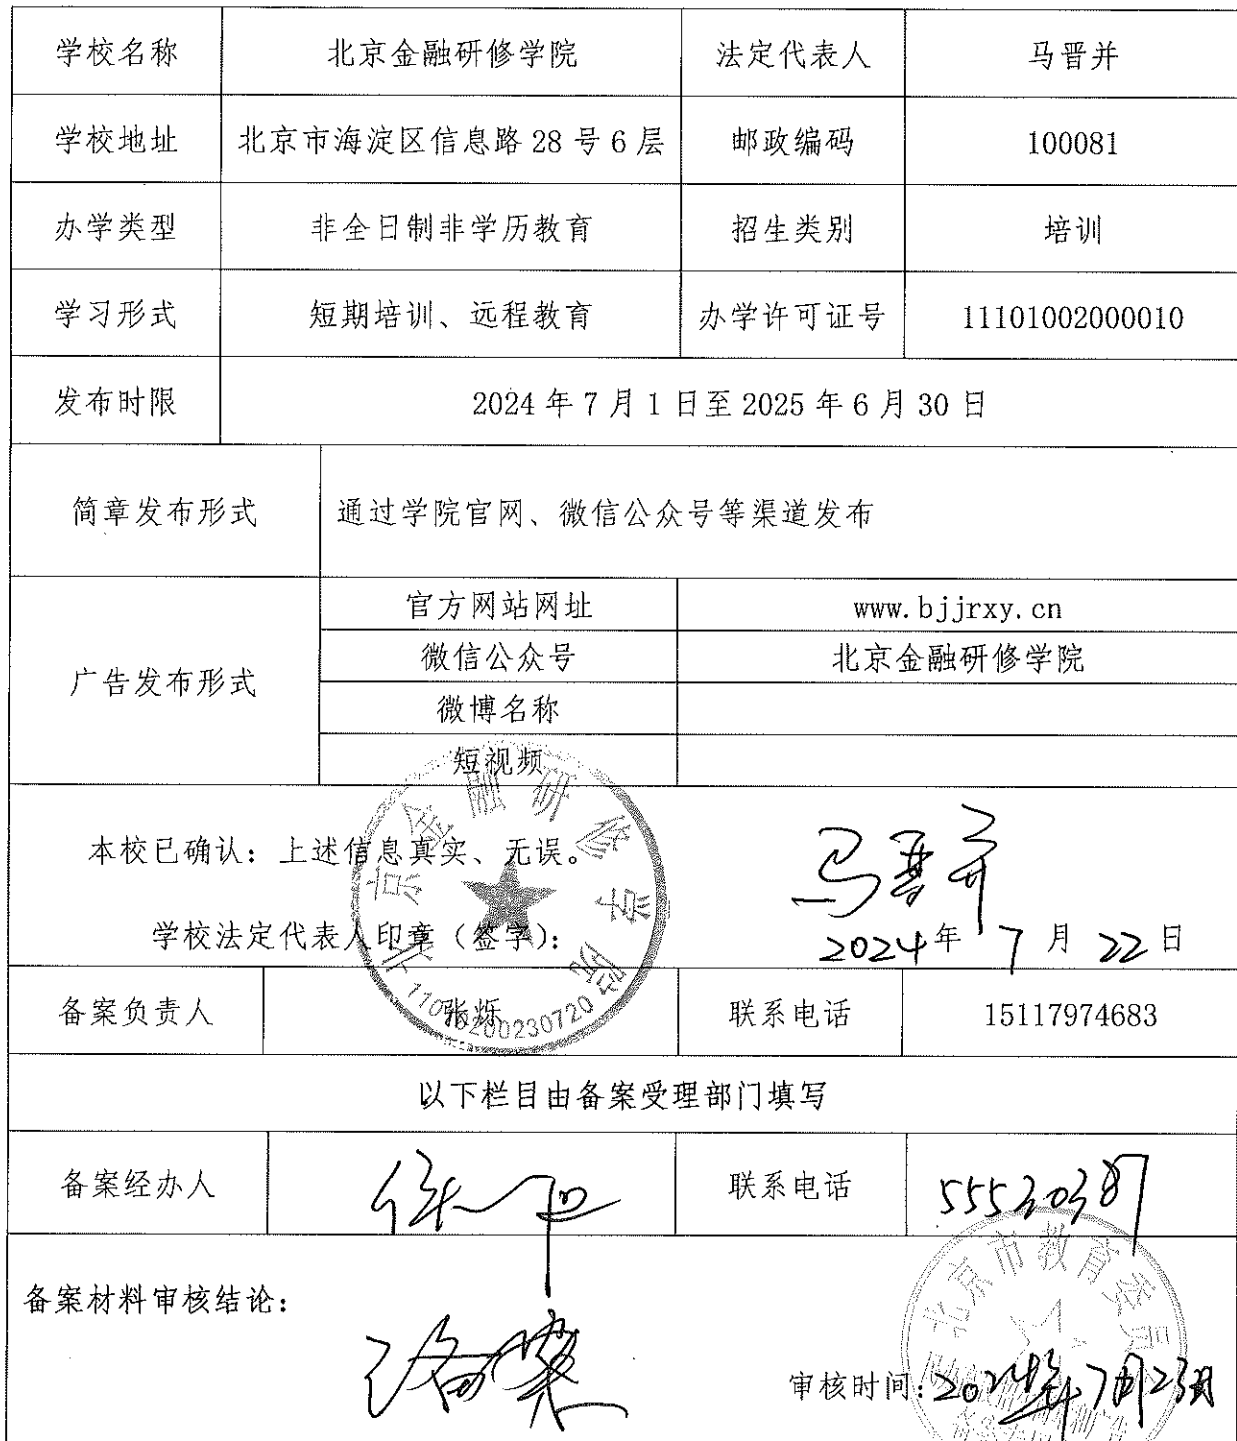 学校名称 北京金融研修学院 法定代表人 马晋并
学校地址 北京市海淀区信息路 28 号 6 层 邮政编码 100081
办学类型 非全日制非学历教育 招生类别 培训
学习形式 短期培训、远程教育 办学许可证号 11101002000010
发布时限 2024 年 7 月 1 日至 2025 年 6 月 30 日
简章发布形式 通过学院官网、微信公众号等渠道发布
广告发布形式
官方网站网址 www.bjjrxy.cn
微信公众号 北京金融研修学院
微博名称
短视频
北京金融研修学院
本校已确认：上述信息真实、无误。
马晋并
学校法定代表人印章（签字）：
2024年 7 月 22 日
备案负责人 张烁 联系电话 15117974683
以下栏目由备案受理部门填写
备案经办人 联系电话 55530387
北京市教育委员
备案材料审核结论：
已备案
审核时间：2024年7月23日